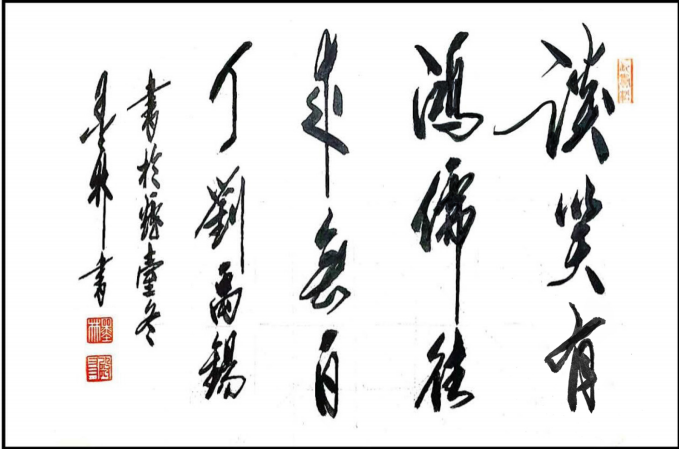 談笑有
鴻儒往
來無白
丁劉禹錫
書於燕臺冬
墨林書
墨林